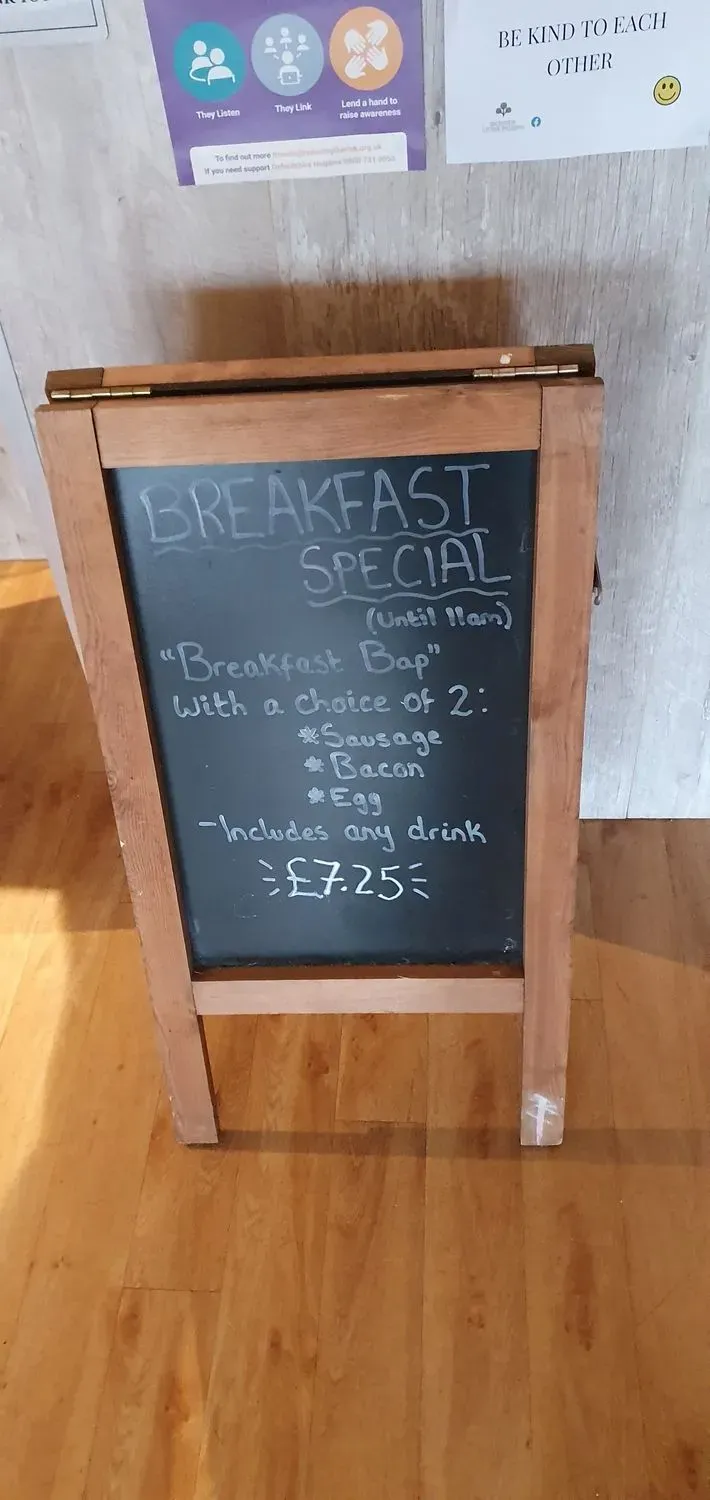 They Listen
They Link
Lend a hand to
raise awareness
To find out more
If you need support
BE KIND TO EACH
OTHER
BREAKFAST
SPECIAL
(Until 11am)
"Breakfast Bap"
with a choice of 2:
*Sausage
*Bacon
*Egg
-Includes any drink
£7.25